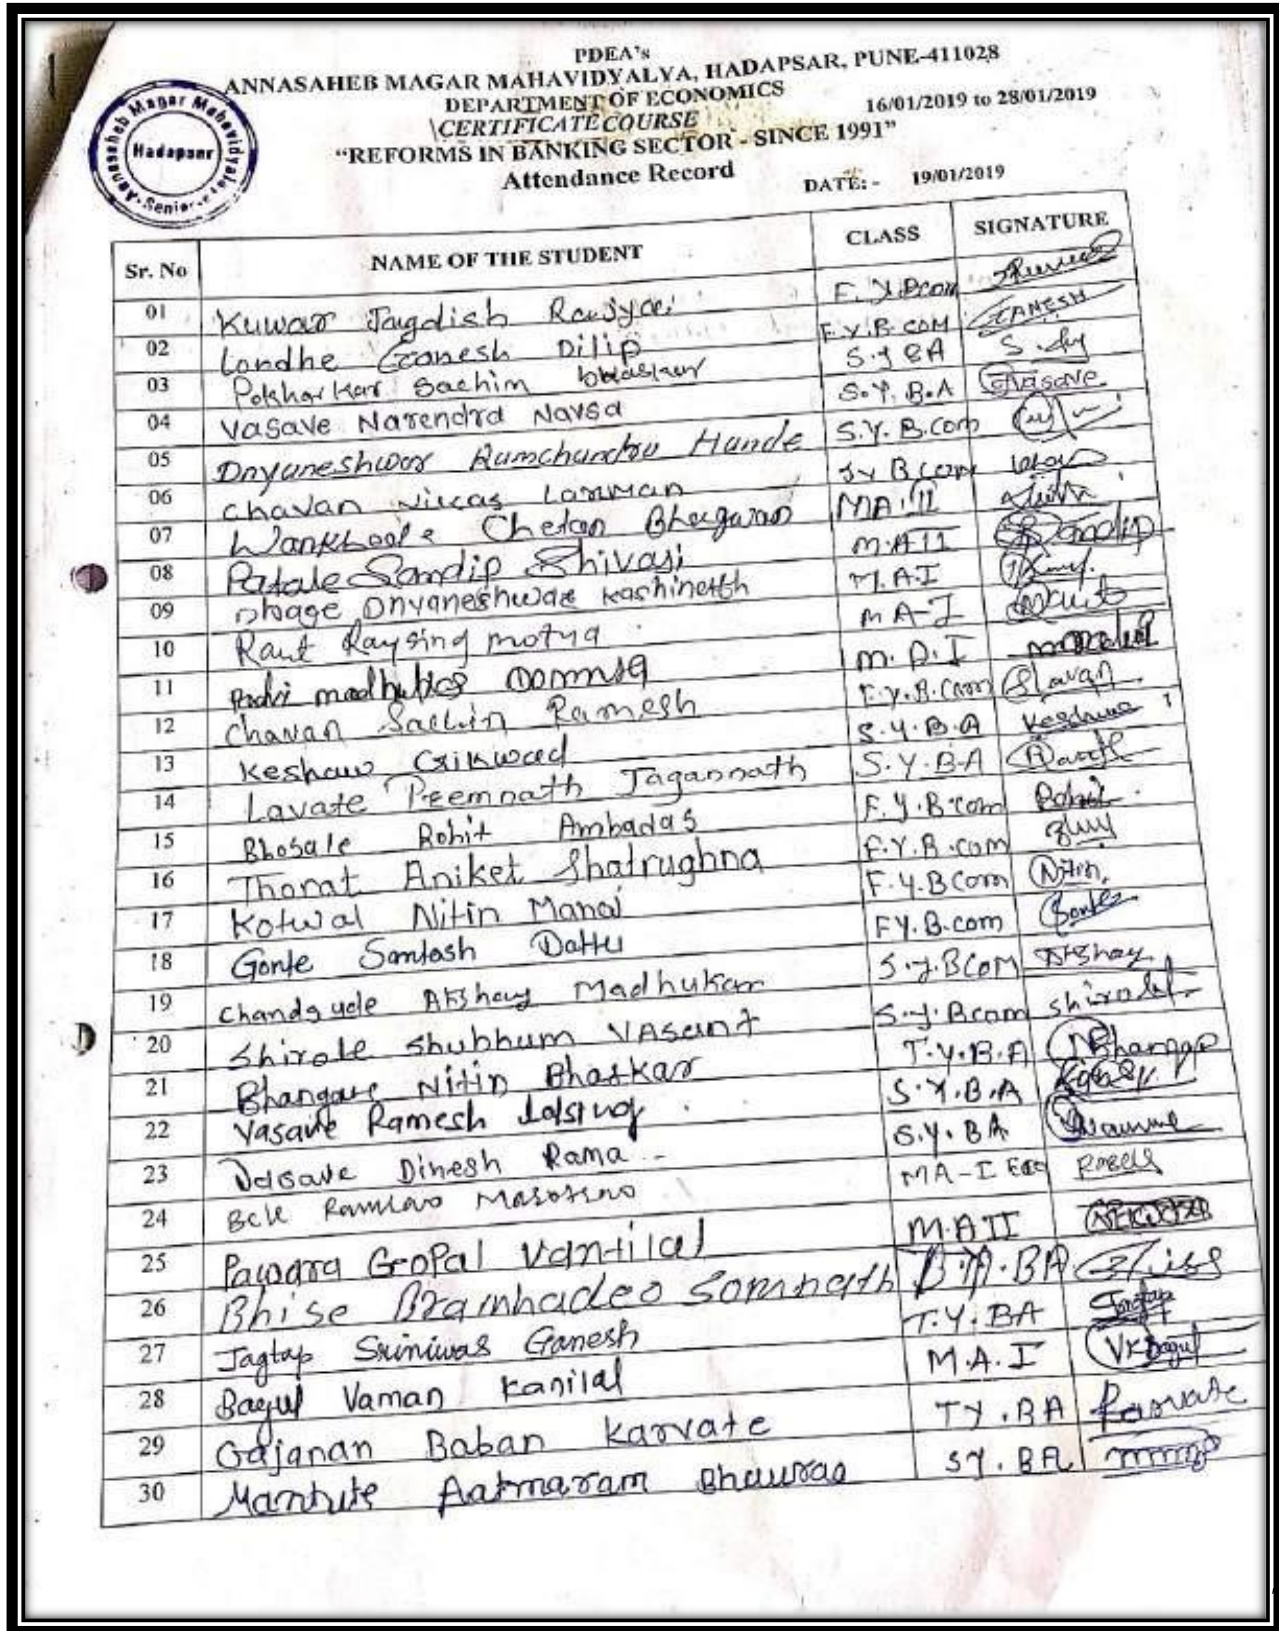 PDEA's
ANNASAHEB MAGAR MAHAVIDYALYA, HADAPSAR, PUNE-411028
DEPARTMENT OF ECONOMICS 16/01/2019 to 28/01/2019
CERTIFICATE COURSE
"REFORMS IN BANKING SECTOR - SINCE 1991"
Attendance Record
DATE: - 19/01/2019
Annasaheb Magar Mahavidyalaya
Hadapsar
Sr. No NAME OF THE STUDENT CLASS SIGNATURE
01 Kuwar Jagdish F.Y.Bcom
02 Londhe Ganesh Dilip F.Y.B.COM GANESH
03 Pokharkar Sachim bhaskar
04 Vasave Narendra Navsa S.Y.B.A Vasave
05 Dnyaneshwar Ramchandra Hande S.Y.B.com
06 Chavan Vikas Laxman Sy Bcom
07 Wankhade Chetan Bhagwan MA.II
08 Patale Sandip Shivaji M.A II Sandip
09 Dhage Dnyaneshwar Kashinath M.A.I
10 Raut Raysing motya MA-I
11 Padvi
12 Chavan Sachin Ramesh F.Y.B.Com Chavan
13 Keshaw Gaikwad S.Y.B.A
14 Lavate Premnath Jagannath S.Y.B.A
15 Bhosale Rohit Ambadas F.Y.B.com Rohit
16 Thorat Aniket Shatrughna F.Y.B.com
17 Kotwal Nitin Manoj F.Y.BCom Nitin
18 Gonte Santosh Dattu FY.B.com Gonte
19 Chandgude Akshay Madhukar S.Y.BCOM Akshay
20 Shirole Shubhum VASant S.Y.Bcom Shirole
21 Bhangare Nitin Bhaskar T.Y.B.A NBhangare
22 Vasave Ramesh S.Y.B.A
23 Vasave Dinesh Rama S.Y.BA
24 MA-I Eco
25 Pawara Gopal Vantilal M.A II
26 Bhise Bramhadeo Somnath Bhise
27 Jagtap Sriniwas Ganesh T.Y.BA Jagtap
28 Bagul Vaman Kanilal M.A.I VKBagul
29 Gajanan Baban Karvate TY.BA Karvate
30 Aatmaram Bhaurao SY.BA